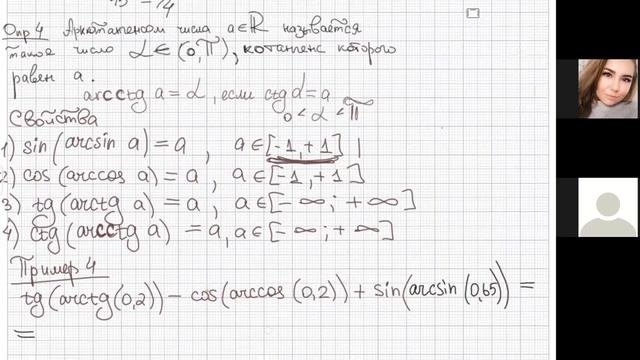 Опр 4 Арккотангенсом числа a∈ℝ называется
такое число α∈(0,π), котангенс которого
равен a.
arcctg a = α, если ctg α = a
0 < α < π
Свойства
1) sin(arcsin a) = a , a∈[-1,+1]
2) cos(arccos a) = a , a∈[-1,+1]
3) tg(arctg a) = a , a∈[-∞;+∞]
4) ctg(arcctg a) = a, a∈[-∞;+∞]
Пример 4
tg(arctg(0,2)) - cos(arccos(0,2)) + sin(arcsin(0,65)) =
=